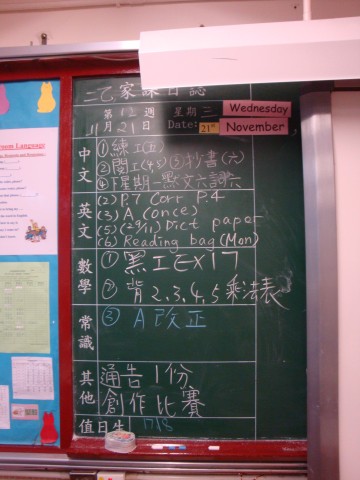 二乙 家課日誌
第12週 星期三 Wednesday
11月21日 Date: 21st November
中文
①練工(五)
②閱工(4,5) ③抄書(六)
④下星期一默文六詞六
英文
(2) P.7 Corr P.4
(3) A (once)
(5) (29/11) Dict paper
(6) Reading bag (Mon)
數學
① 黑工Ex17
② 背2,3,4,5乘法表
常識
③ A 改正
其他
通告1份
創作比賽
值日生
room Language